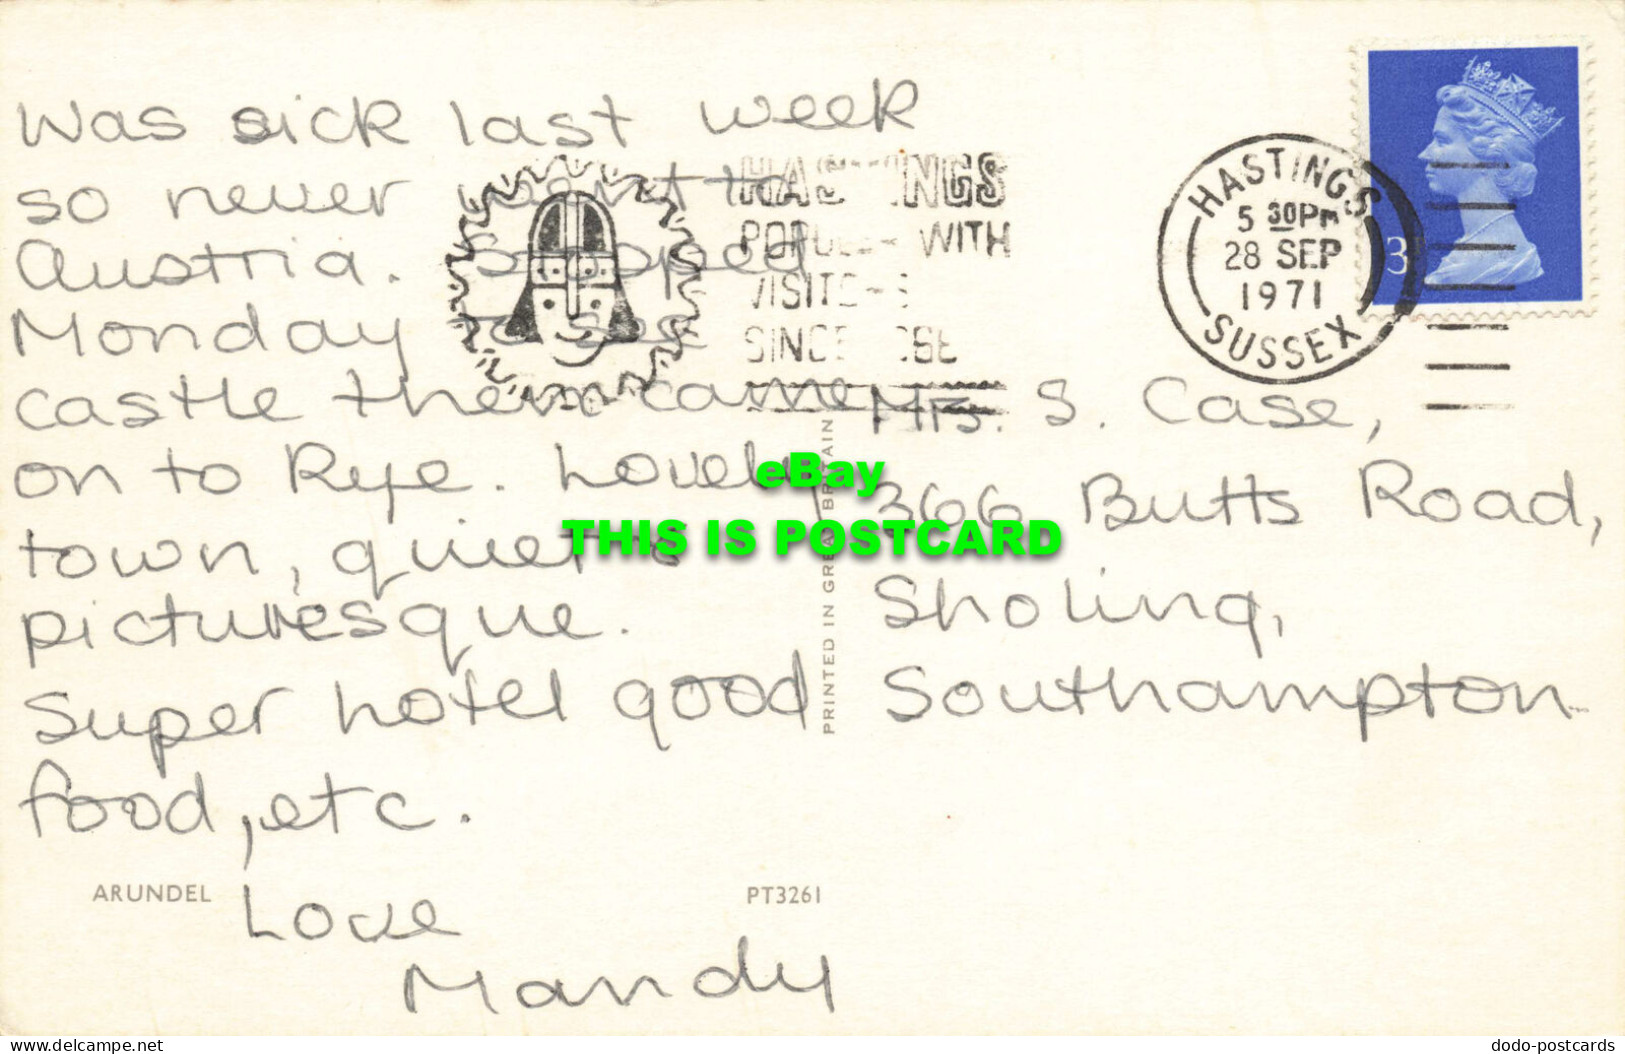 Was sick last week
so never went to
Austria. Stopped
Monday to see
castle then came
on to Rye. Lovely
town, quiet &
picturesque.
Super hotel good
food, etc.
Love
Mandy
HASTINGS
POPULAR WITH
VISITORS
SINCE
HASTINGS
5 30PM
28 SEP
1971
SUSSEX
3
Mrs. S. Case,
366 Butts Road,
Sholing,
Southampton
PRINTED IN GREAT BRITAIN
ARUNDEL
PT3261
eBay
THIS IS POSTCARD
delcampe.net
dodo-postcards